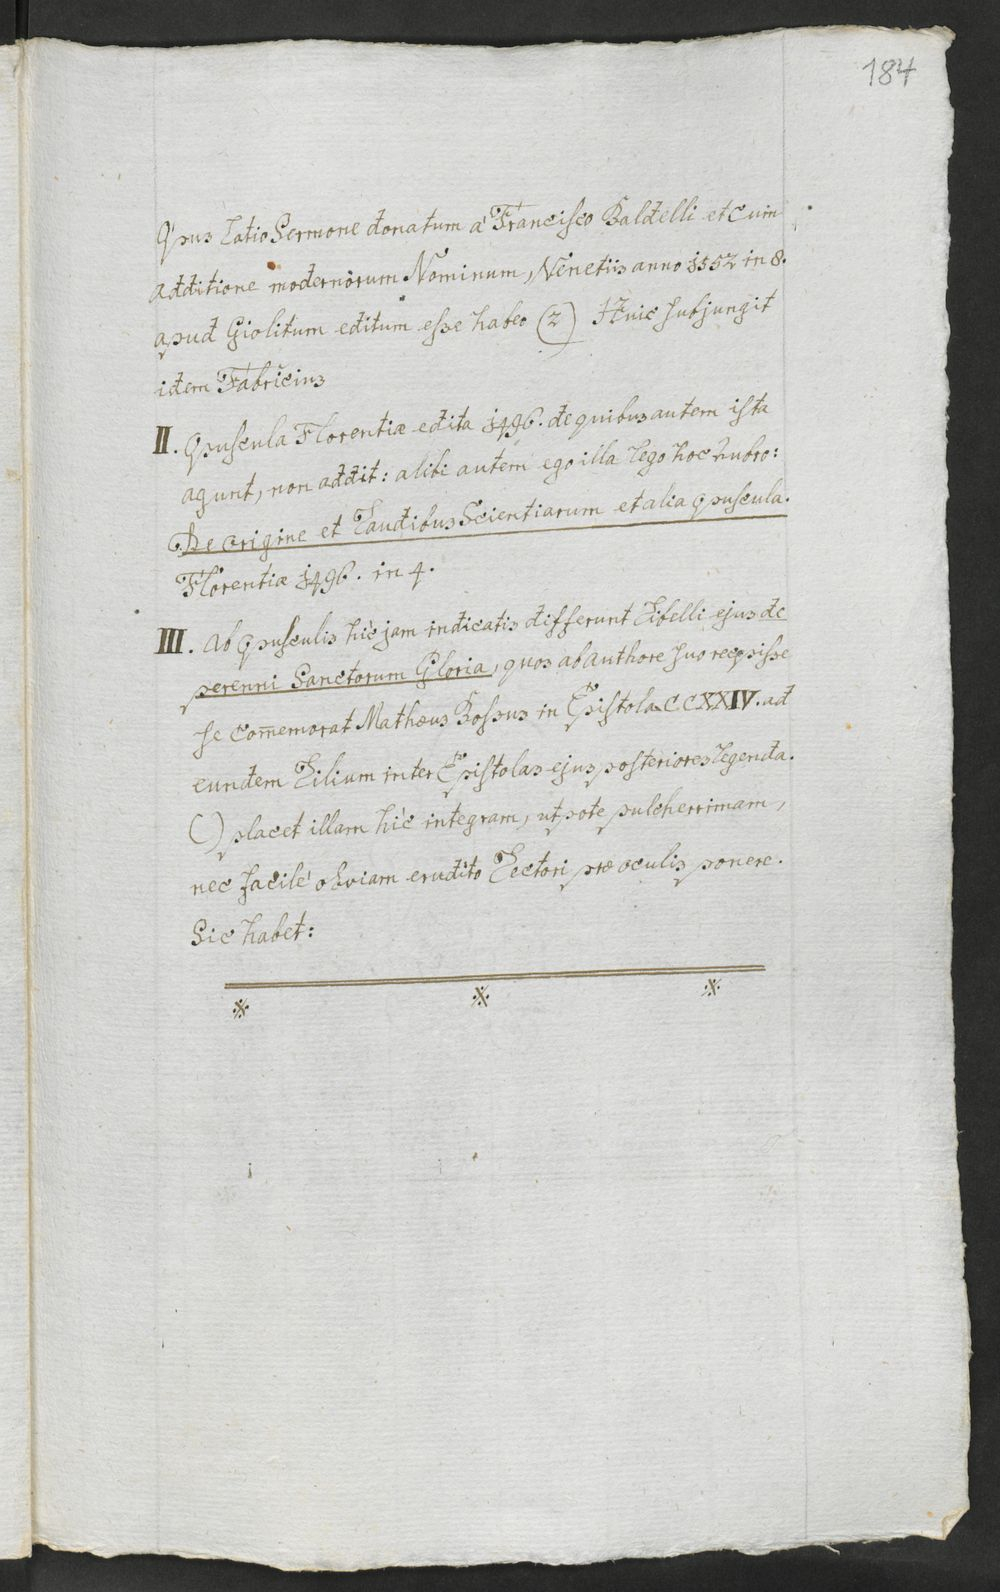 184
Opus Latio Sermone donatum à Francisco Baldelli et cum
additione modernorum Nominum, Venetiis anno 1552 in 8.
apud Giolitum editum esse habeo (2) Huic subjungit
idem Fabricius
II. Opuscula Florentiæ edita 1496. de quibus autem ista
agunt, non addit: alibi autem ego illa lego hoc rubro:
De origine et Laudibus Scientiarum et alia opuscula.
Florentiæ 1496. in 4.
III. Ab opusculis hìc jam indicatis differunt Libelli ejus de
perenni Sanctorum Gloria, quos ab authore suo recepisse
se com̄emorat Mathæus Bossus in Epistola CCXXIV. ad
eundem Lilium inter Epistolas ejus posteriores legenda.
() placet illam hìc integram, utpote pulcherrimam,
nec facilè obviam erudito Lectori præ oculis ponere.
Sic habet: